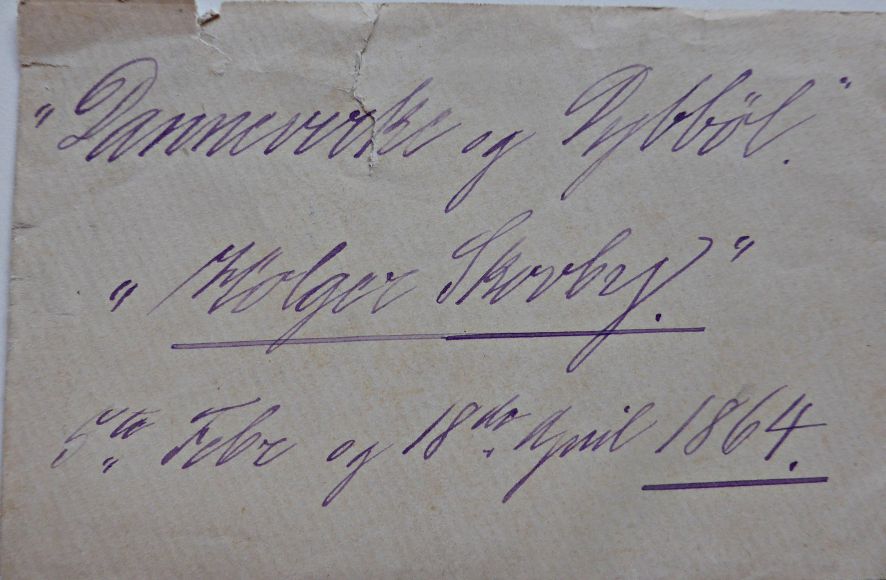 "Dannevirke og Dybböl."
"Holger Skovby."
5te Febr og 18de April 1864.